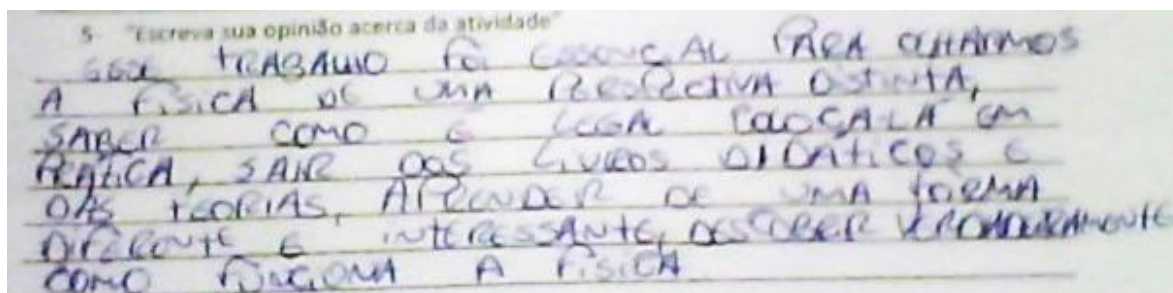 5- "Escreva sua opinião acerca da atividade"
ESSE TRABALHO FOI ESSENCIAL PARA OLHARMOS
A FÍSICA DE UMA RESPECTIVA DISTINTA,
SABER COMO É LEGAL COLOCA-LA EM
PRÁTICA, SAIR DOS LIVROS DIDÁTICOS E
DAS TEORIAS, APRENDER DE UMA FORMA
DIFERENTE E INTERESSANTE, DESCOBRER VERDADEIRAMENTE
COMO FUNCIONA A FÍSICA